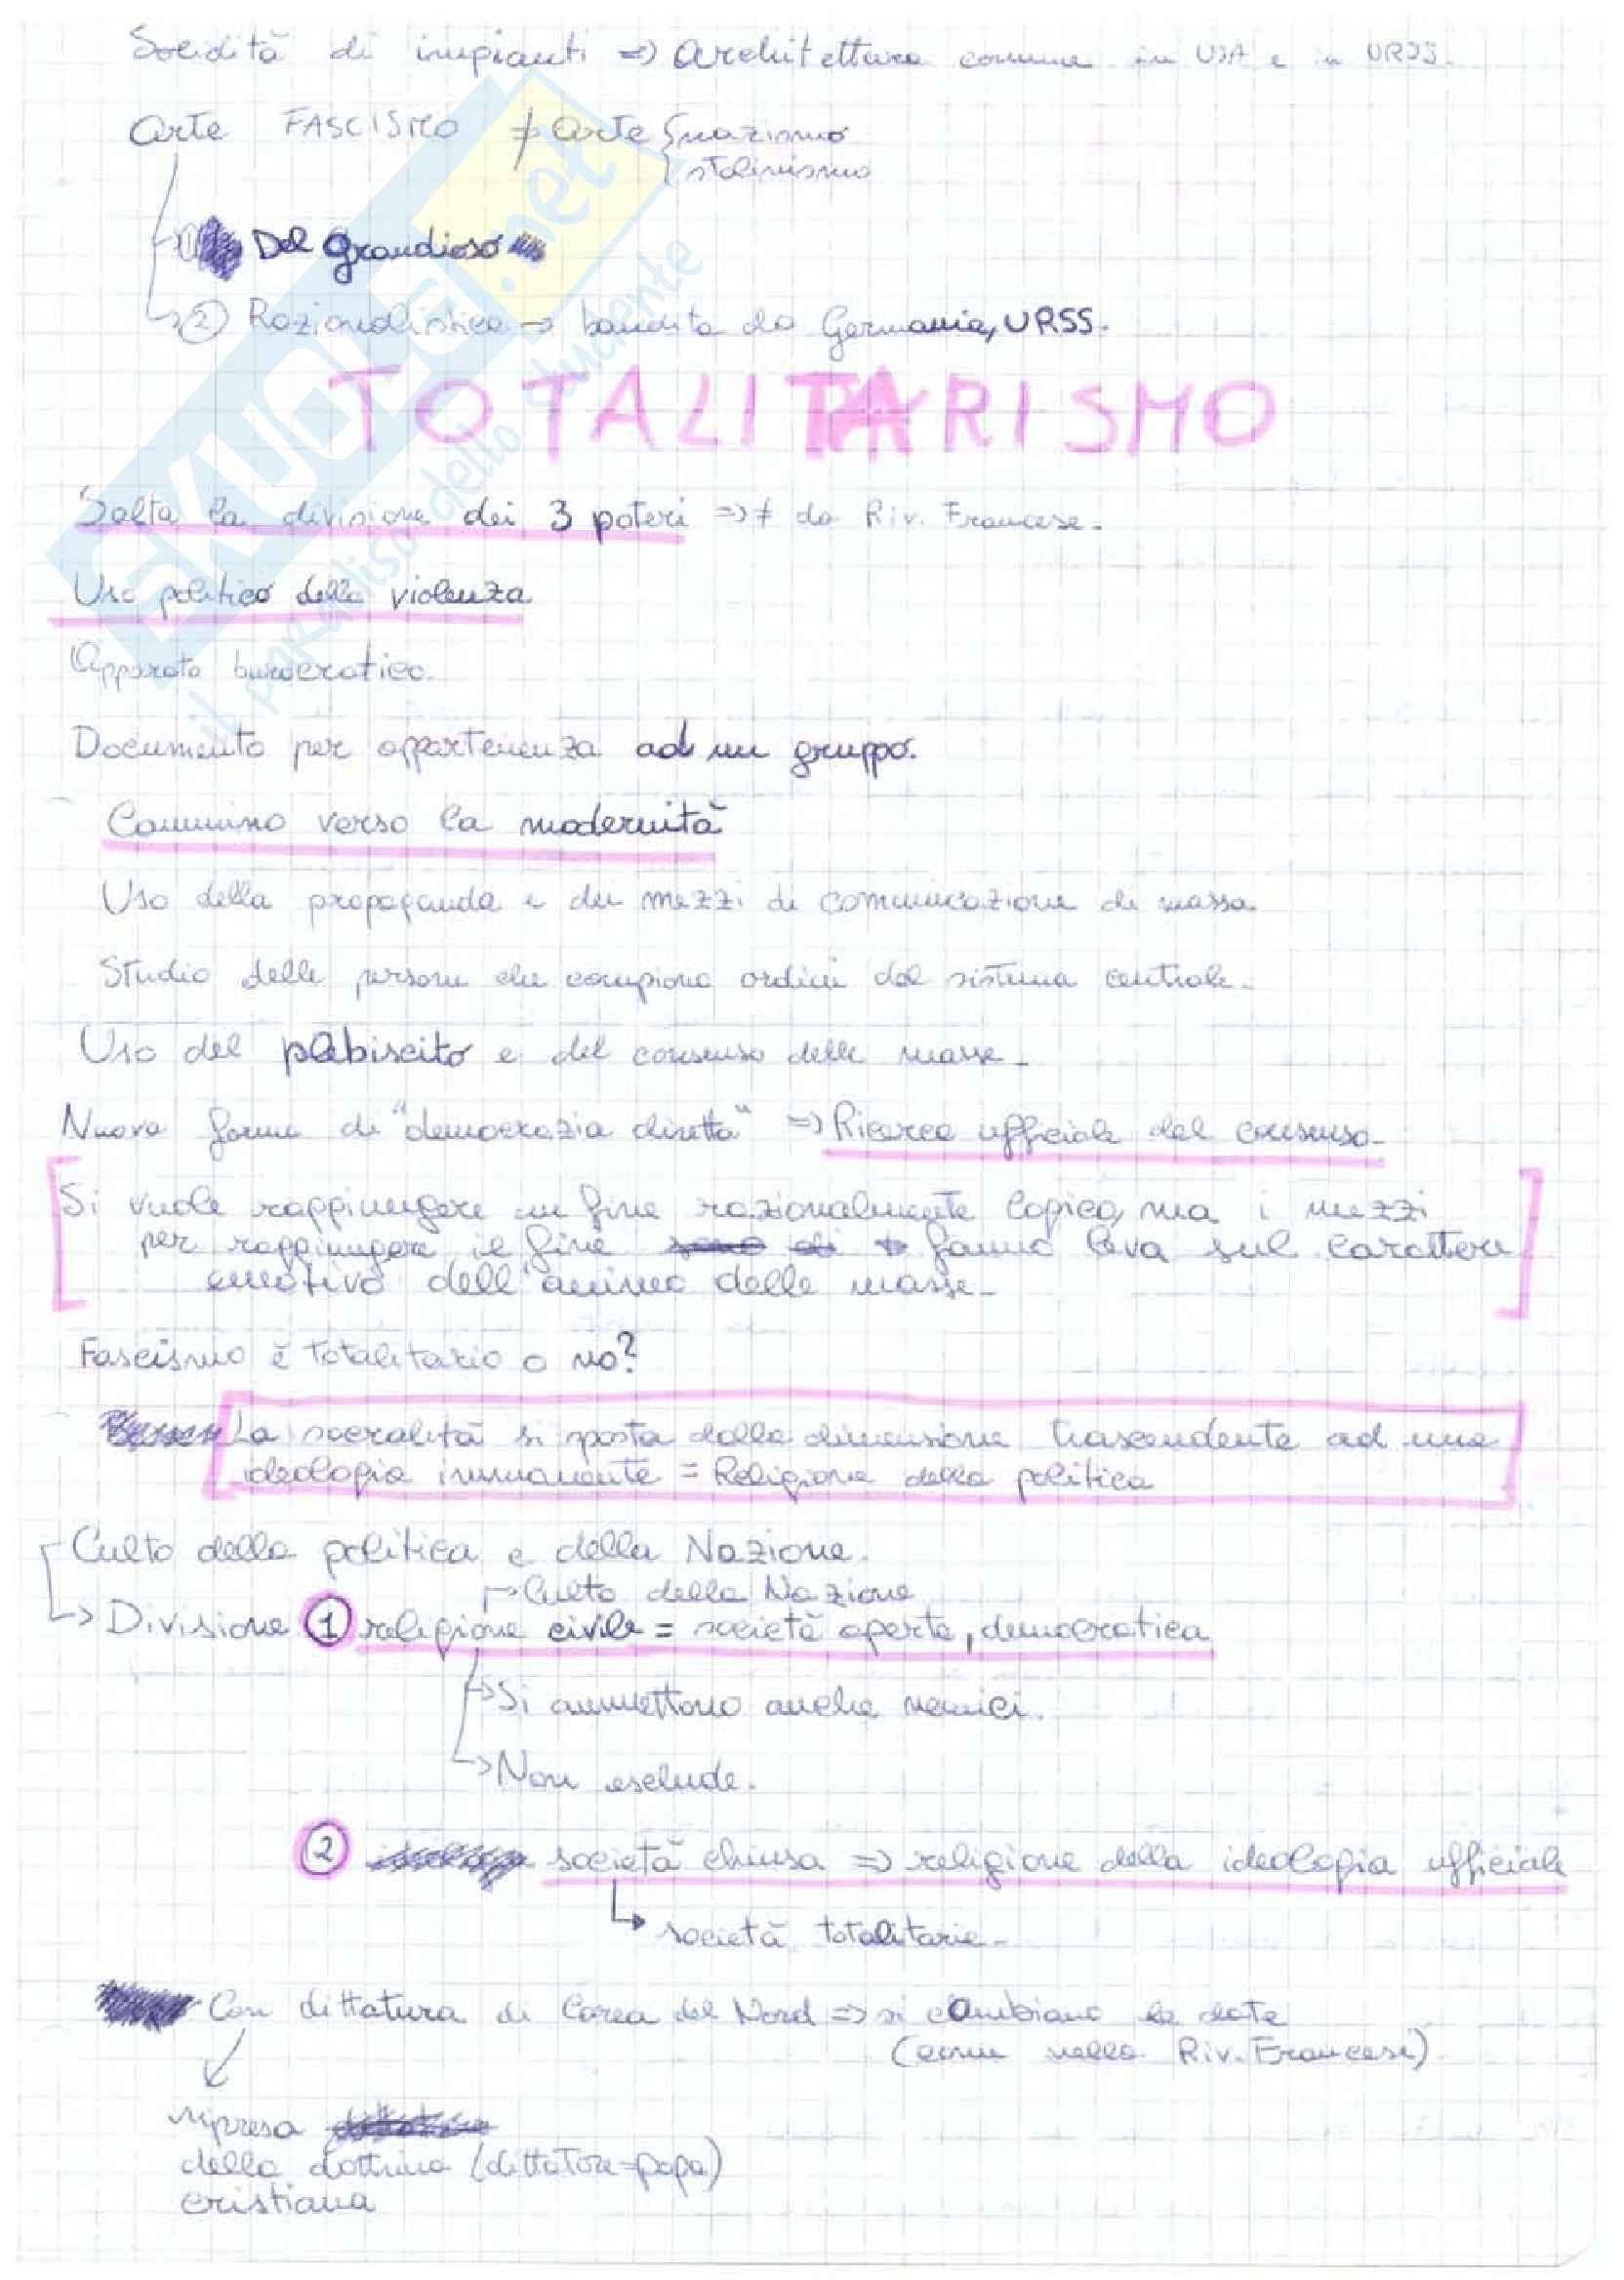 Solidità di impianti => architettura comune in USA e in URSS.
Arte FASCISMO ≠ arte { nazismo
stalinismo
① Del grandioso
② Razionalistica → bandita da Germania, URSS.
TOTALITARISMO
Salta la divisione dei 3 poteri => ≠ da Riv. Francese.
Uso politico della violenza
Apparato burocratico.
Documento per appartenenza ad un gruppo.
Cammino verso la modernità
Uso della propaganda e dei mezzi di comunicazione di massa.
Studio delle persone che compiono ordini dal sistema centrale.
Uso del plebiscito e del consenso delle masse.
Nuova forma di "democrazia diretta" => Ricerca ufficiale del consenso.
Si vuole raggiungere un fine razionalmente logico, ma i mezzi
per raggiungere il fine fanno leva sul carattere
emotivo dell'animo delle masse.
Fascismo è totalitario o no?
La sacralità si sposta dalla dimensione trascendente ad una
ideologia immanente = Religione della politica
Culto della politica e della Nazione.
→ Culto della Nazione
→ Divisione ① religione civile = società aperta, democratica
→ Si ammettono anche nemici.
→ Non esclude.
② società chiusa => religione della ideologia ufficiale
→ società totalitarie.
Con dittatura di Corea del Nord => si cambiano le date
(come nella Riv. Francese)
ripresa
della dottrina (dittatore=papa)
cristiana
SKUOLA.net
il paradiso dello studente